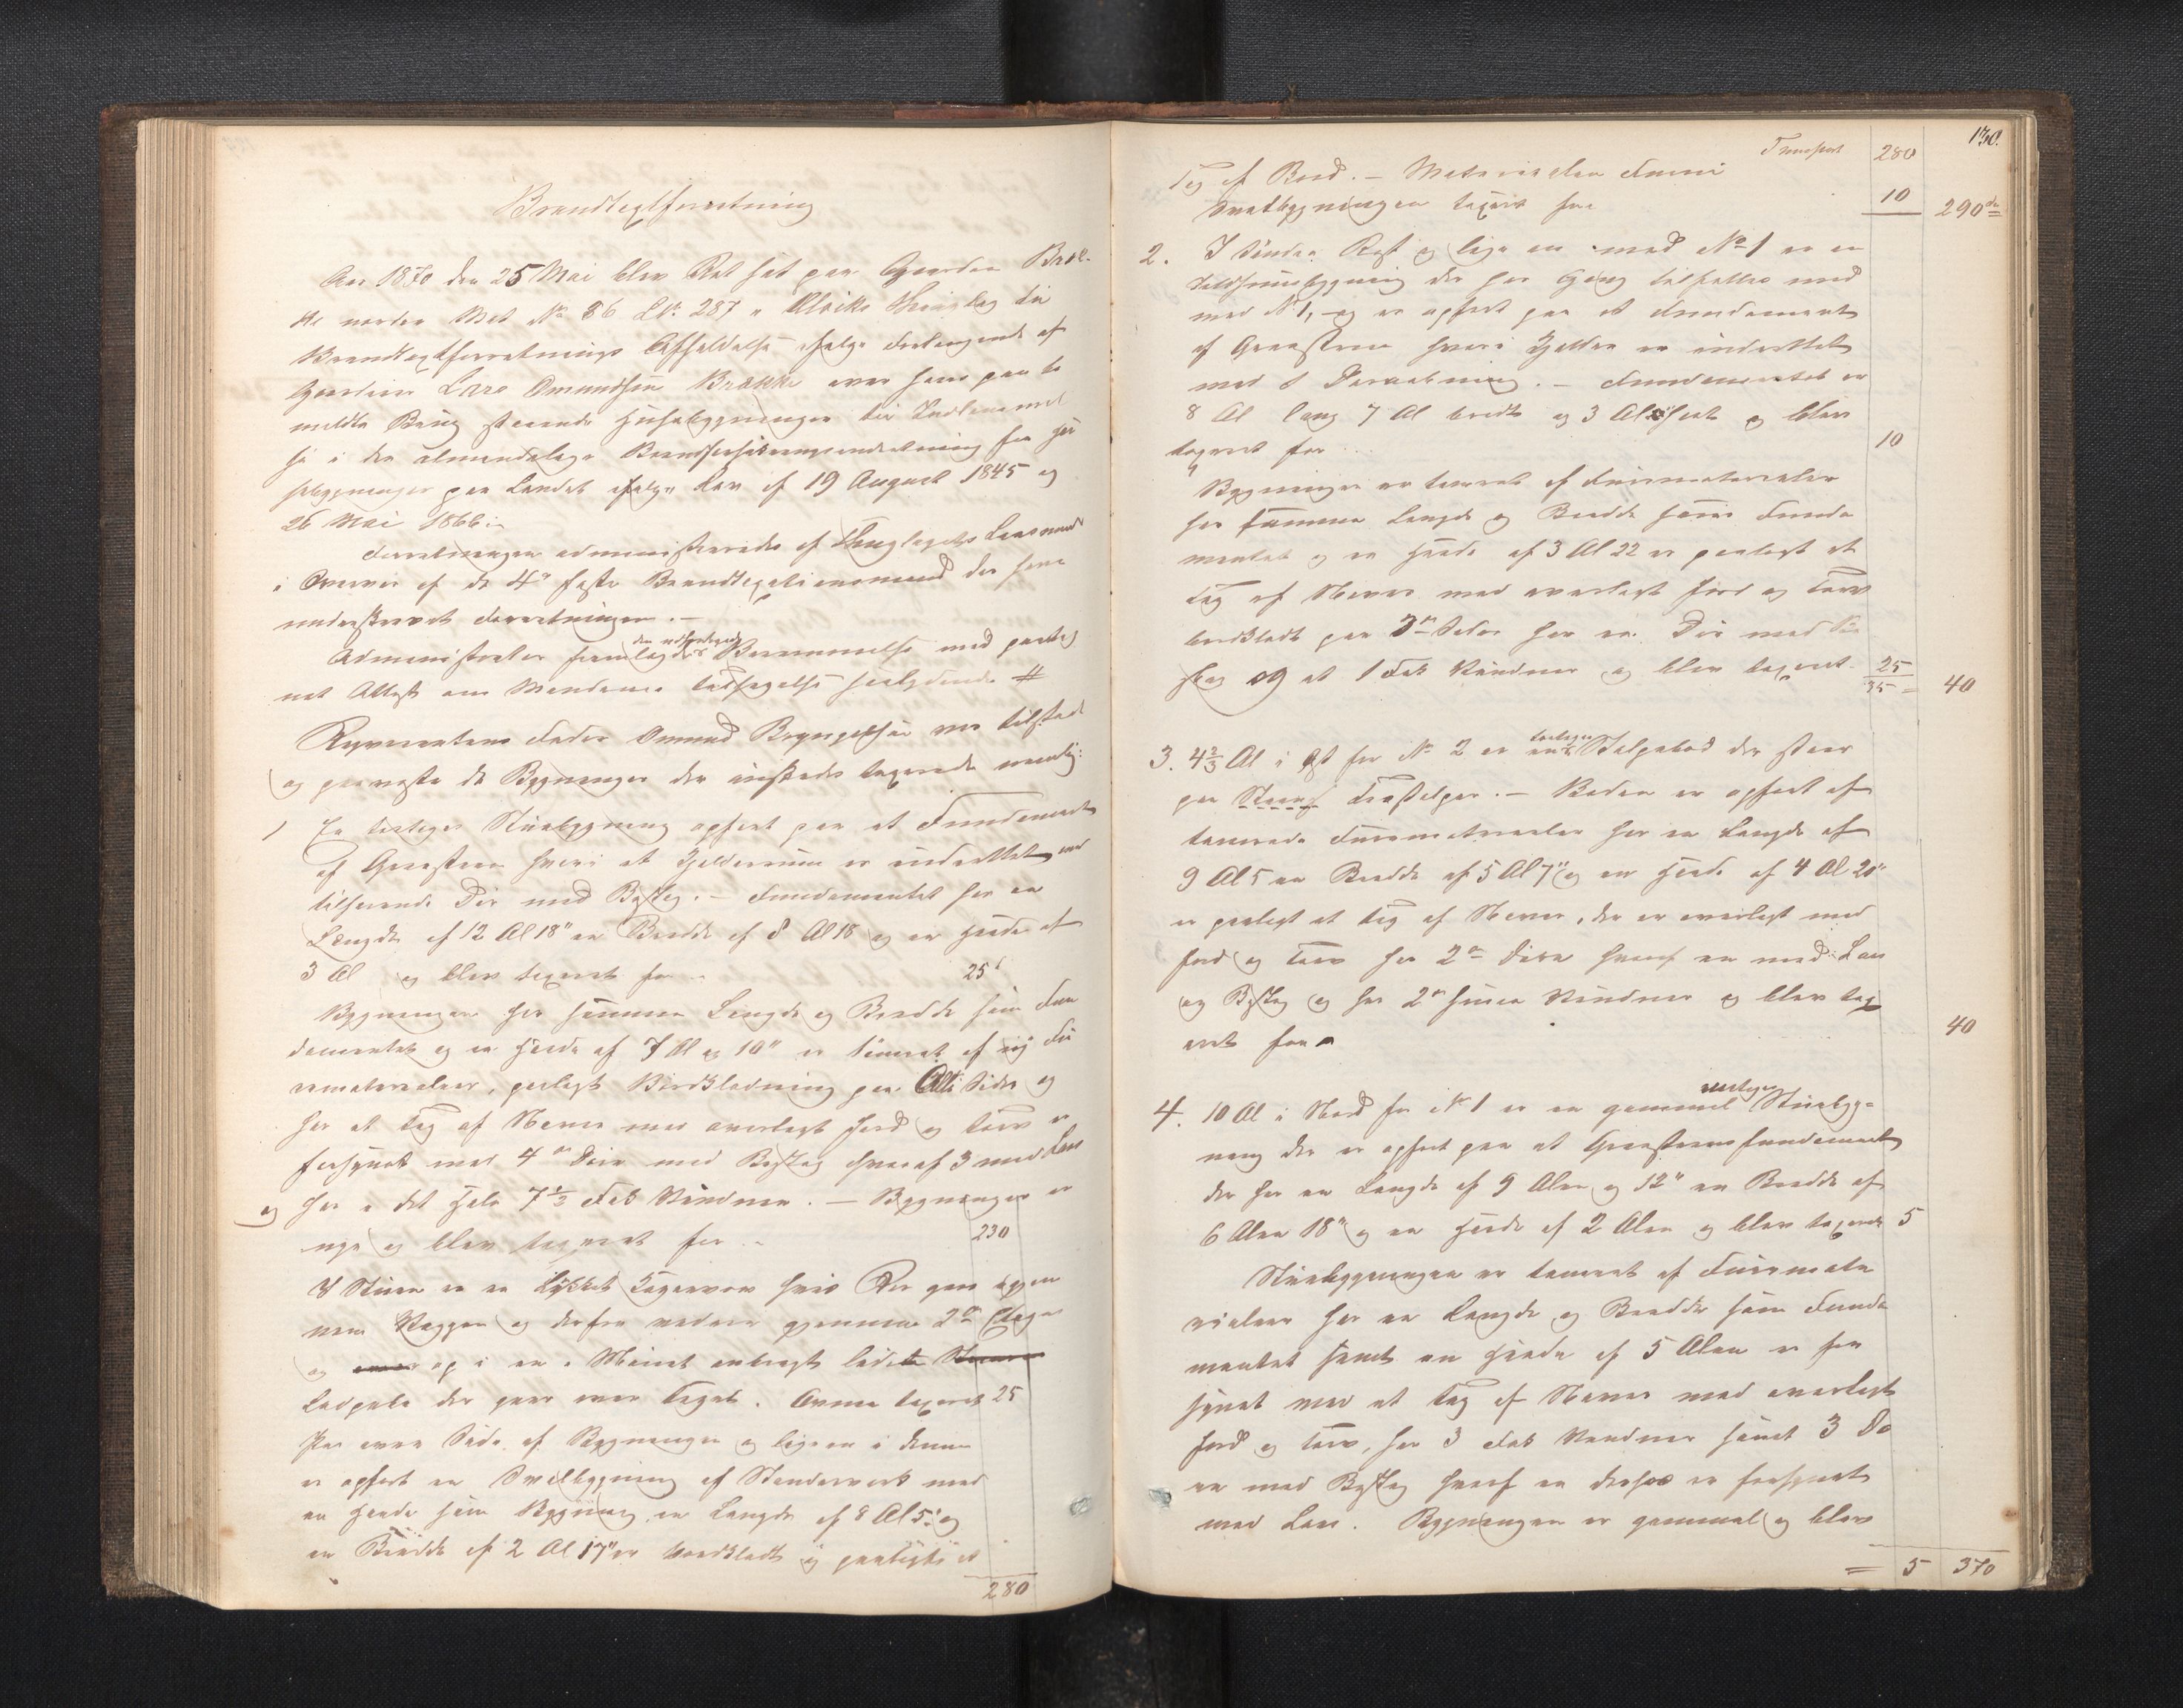 Brandtextforretning
Aar 1870 den 25 Mai blev Ret sat paa Gaarden Brek-
ke nordre Mat No 86 Lb: 287 i Ulviks Thinglag til
Brandtextforretnings Afholdelse ifølge Forlangende af
Gaardeier Lars Omundsen Brække over hans paa be
meldte Brug staaende Huusbygninger til Indlemmel
se i den almindelige Brandforsikringsindretning for Hu
sebygninger paa Landet ifølge Lov af 19 August 1845 og
26 Mai 1866.
Forretningen administreredes af Thinglagets Lensmand
i Overvær af de 4re faste Brandtexationsmænd der have
underskrevet Forretningen. —
Administrator fremlagde den udfærdigede Berammelse med paateg
net Attest om Mændenes Tilsigelse saalydende #
Reqvirentens Fader Omund Brynjulfsen var tilstede
og paaviste de Bygninger der ønskedes taxerede nemlig:
1 En toetages Stuebygning opført paa et Fundament
af Graasteen hvori et Kjelderrum er indrettet med
tilhørende Dør med Beslag. — Fundamentet har en
Længde af 12 Al 18" en Bredde af 8 Al 18 og en Høide af
3 Al og blev taxeret for 25
Bygningen har samme Længde og Bredde som Fun
damentet og en Høide af 7 Al og 10" er tømret af ny Fu
rematerialer, paalagt Bordklædning paa Alle Sider og
har et Tag af Næver med overlagt Jord og Torv er
forsynet med 4re Døre med Beslag hvoraf 3 med Laas
og har i det Hele 7 1/2 Fag Vinduer. — Bygningen er
nye og blev taxeret for 230
I Stuen er en Kakkelovn hvis Rør gaar igjen
nem Væggen og derfra videre gjennem 2de Etager
og op i en i Muret anbragt
Ladpibe der gaar over Taget. Ovnen taxeret 25
Paa øvre Side af Bygningen og ligesom i denne
er opført en Svalbygning af Stenderverk med
en Høide som Bygning, en Længde af 8 Al 5" og
en Bredde af 2 Al 17" er bordklædt og paalagt et
280
130.
Transport 280
Tag af Bord. — Materialen Furu
Svalbygningen taxeres for 10 290
2. I Sønder Øst og lige en med No 1 er en
Ildhuusbygning der har Gang tilfælles med
med No 1, og er opført paa et Fundament
af Graasteen hvori Kjelder er indrettet
med Fundamentet er
8 Al lang 7 Al bredt og 3 Al høit og blev
taxeret for 10
Bygningen er tømret af Furumaterialer
har samme Længde og Bredde som Funda
mentet og en Høide af 3 Al 22 er paalagt et
Tag af Næver med overlagt Jord og Torv
bordklædt paa 3de Sider har en Dør med Be
slag og et 1 Fag Vinduer og blev taxeret 25
35 = 40
3. 4 2/3 Al i Øst for No 2 er en toetages Stolpebod der staar
paa Træstolper. — Boden er opført af
tømrede Furumaterialer har en Længde af
9 Al 5 en Bredde af 5 Al 7" og en Høide af 4 Al 20"
er paalagt et Tag af Næver, der er overlagt med
Jord og Torv har 2de Døre hvoraf en med Laas
og Beslag og har 2de smaa Vinduer og blev tax
eret for 40
4. 10 Al i Nord for No 1 er en gammel Stuebyg-
ning der er opført paa et Graasteensfundament
der har en Længde af 9 Alen og 12" en Bredde af
6 Alen 18" og en Høide af 2 Alen og blev taxeret 5
Stuebygningen er tømret af Furumate
rialer har en Længde og Bredde som Funda
mentet samt en Høide af 5 Alen er for
synet med et Tag af Næver med overlagt
Jord og Torv, har 3 Fag Vinduer samt 3 Dø
re med Beslag hvoraf en dessuden er forsynet
med Laas. Bygningen er gammel og blev
= 5 370